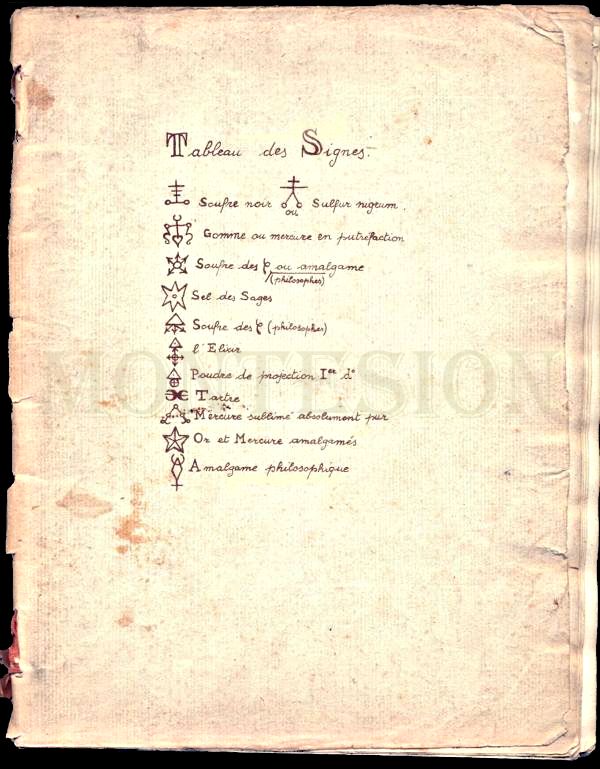 Tableau des Signes.
Soufre noir ou Sulfur nigrum.
Gomme ou mercure en putréfaction
Soufre des φ ou amalgame
(philosophes)
Sel des Sages
Soufre des φ (philosophes)
l'Elixir
Poudre de projection Ier do
Tartre
Mercure sublimé absolument pur
Or et Mercure amalgamés
Amalgame philosophique